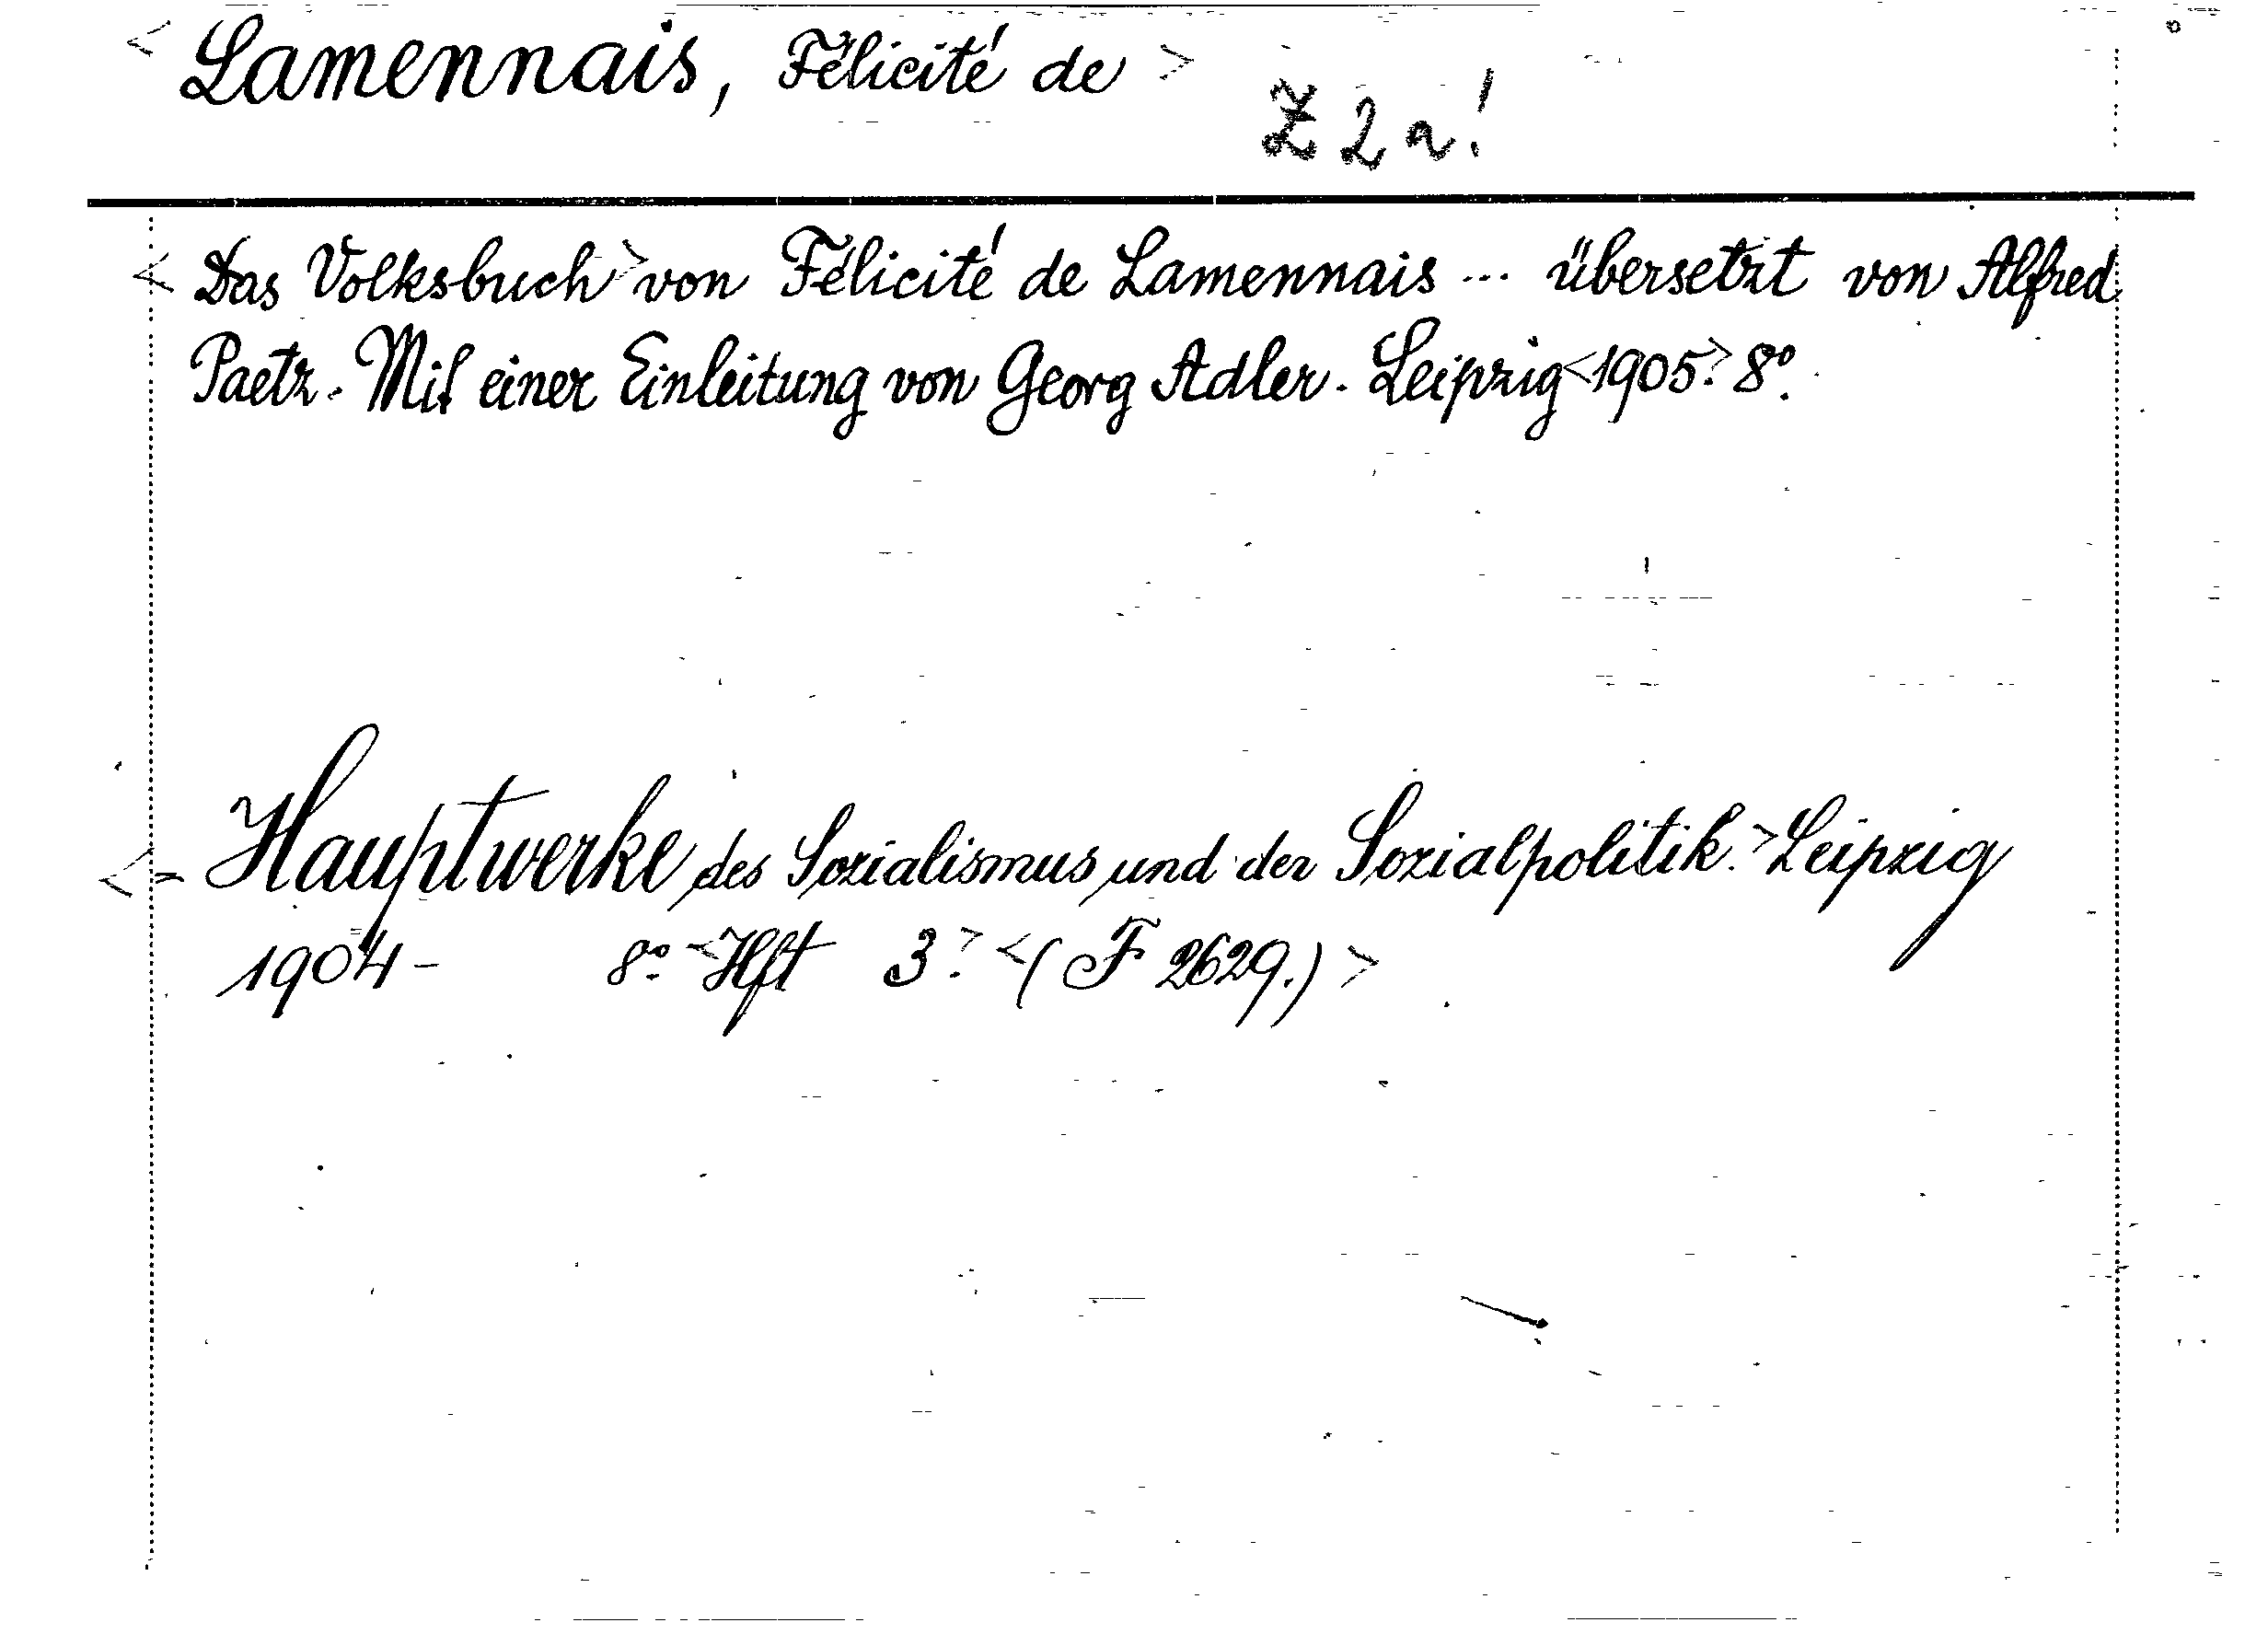 < Lamennais, Félicité de >
Z 2 a!
< Das Volksbuch > von Félicité de Lamennais ... übersetzt von Alfred
Paetz. Mit einer Einleitung von Georg Adler. Leipzig <1905>. 8º.
< = Hauptwerke des Sozialismus und der Sozialpolitik. > Leipzig
1904 - 8º. < Hft 3 >. < ( F 2629.) >